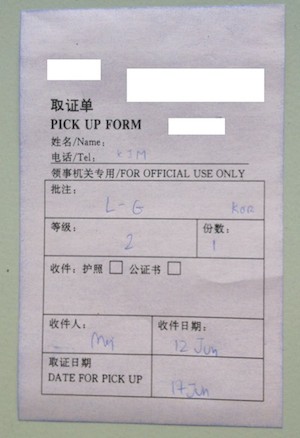 取证单
PICK UP FORM
姓名/Name:
电话/Tel: KJM
领事机关专用/FOR OFFICIAL USE ONLY
批注:
L-G KOR
等级: 份数:
2 1
收件: 护照 □ 公证书 □
收件人: 收件日期:
12 Jun
取证日期
DATE FOR PICK UP 17 Jun